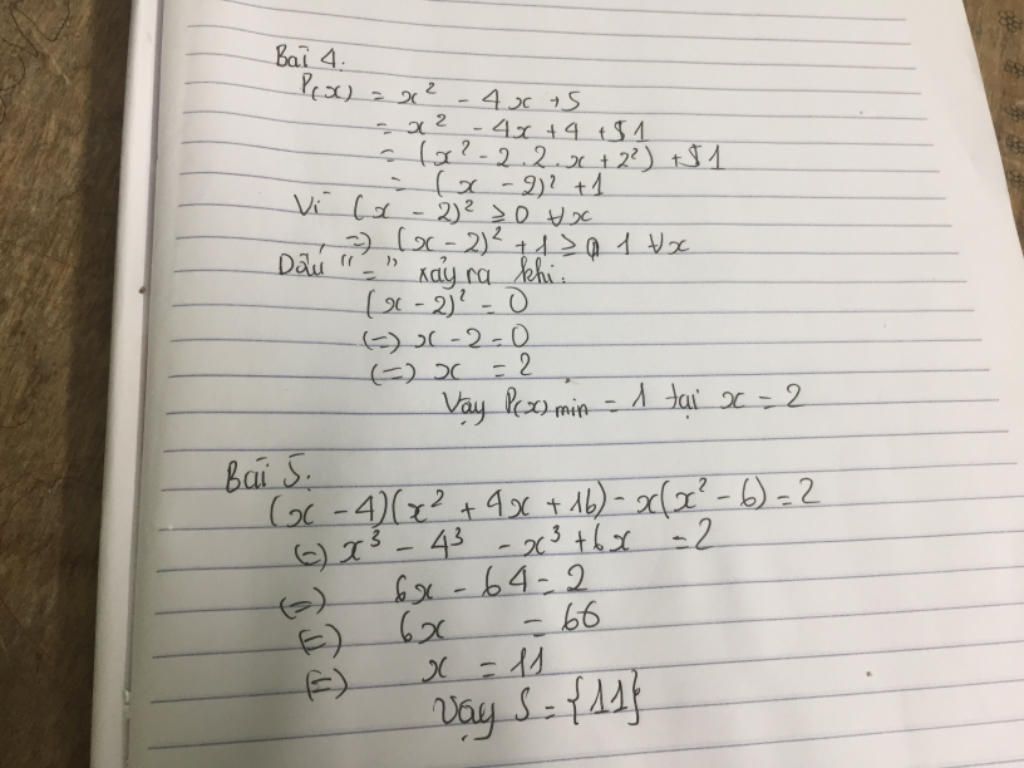 Bài 4.
P(x) = x² - 4x + 5
= x² - 4x + 4 + 1
= (x² - 2.2.x + 2²) + 1
= (x - 2)² + 1
Vì (x - 2)² ≥ 0 ∀x
=) (x - 2)² + 1 ≥ 1 ∀x
Dấu "=" xảy ra khi:
(x - 2)² = 0
(=) x - 2 = 0
(=) x = 2
Vậy P(x) min = 1 tại x = 2
Bài 5.
(x - 4)(x² + 4x + 16) - x(x² - 6) = 2
(=) x³ - 4³ - x³ + 6x = 2
(=) 6x - 64 = 2
(=) 6x = 66
(=) x = 11
Vậy S = {11}